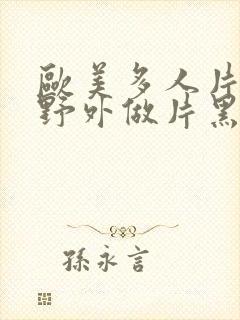 歐美多人片
野外做片黑
孫永言